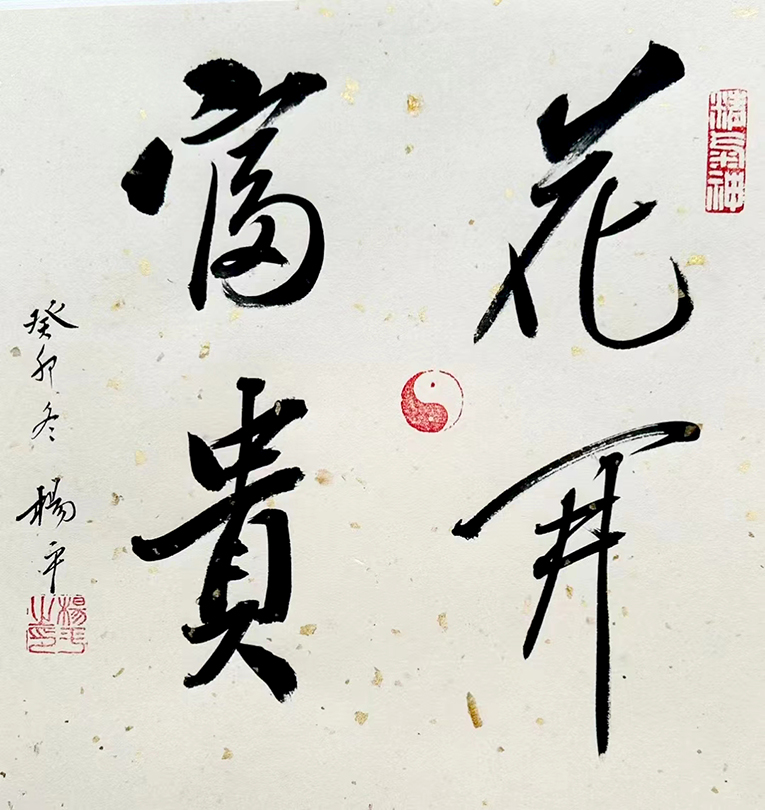 精气神
花开
富貴
癸卯冬 楊平
楊平之印